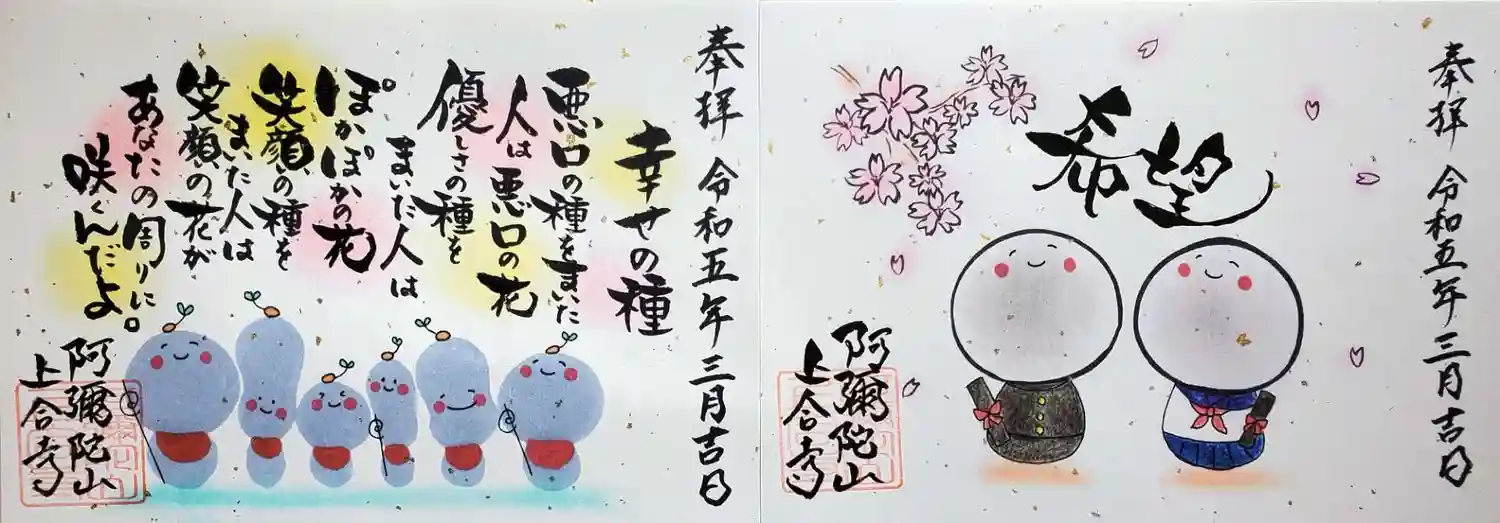 奉拝 令和五年三月吉日
幸せの種
悪口の種をまいた
人は悪口の花
優しさの種を
まいた人は
ぽかぽかの花
笑顔の種を
まいた人は
笑顔の花が
あなたの周りに
咲くんだよ
阿彌陀山
上合寺
奉拝 令和五年三月吉日
希望
阿彌陀山
上合寺